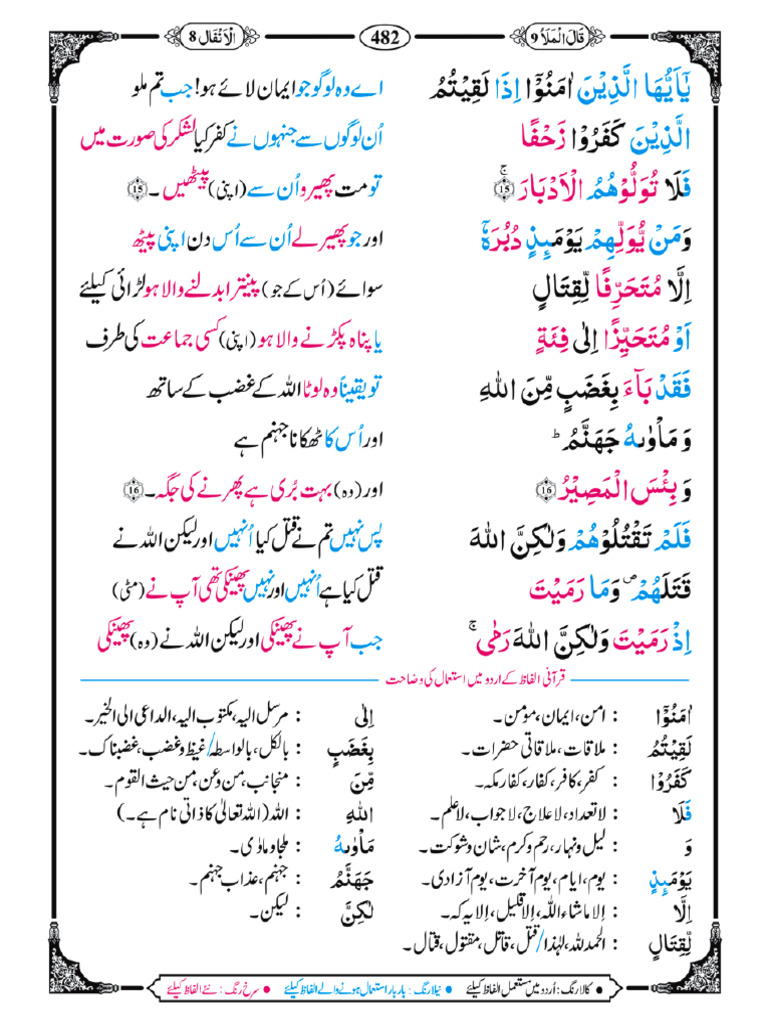 قَالَ الْمَلَاُ 9 482 الْاَنْفَال 8
يٰۤاَيُّهَا الَّذِيْنَ اٰمَنُوْۤا اِذَا لَقِيْتُمُ اے وہ لوگو جو ایمان لائے ہو! جب تم ملو
الَّذِيْنَ كَفَرُوْا زَحْفًا اُن لوگوں سے جنہوں نے کفر کیا لشکر کی صورت میں
فَلَا تُوَلُّوْهُمُ الْاَدْبَارَ ۚ 15 تو مت پھیرو اُن سے (اپنی) پیٹھیں ۔ 15
وَمَنْ يُّوَلِّهِمْ يَوْمَىِٕذٍ دُبُرَهٗۤ اور جو پھیر لے اُن سے اُس دن اپنی پیٹھ
اِلَّا مُتَحَرِّفًا لِّقِتَالٍ سوائے (اُس کے جو) پینترا بدلنے والا ہو لڑائی کیلئے
اَوْ مُتَحَيِّزًا اِلٰى فِئَةٍ یا پناہ پکڑنے والا ہو (اپنی) کسی جماعت کی طرف
فَقَدْ بَآءَ بِغَضَبٍ مِّنَ اللّٰهِ تو یقیناً وہ لوٹا اللہ کے غضب کے ساتھ
وَ مَاْوٰىهُ جَهَنَّمُ ؕ اور اُس کا ٹھکانا جہنم ہے
وَ بِئْسَ الْمَصِيْرُ 16 اور (وہ) بہت بُری ہے پھرنے کی جگہ ۔ 16
فَلَمْ تَقْتُلُوْهُمْ وَلٰكِنَّ اللّٰهَ پس نہیں تم نے قتل کیا اُنہیں اور لیکن اللہ نے
قَتَلَهُمْ ۪ وَمَا رَمَيْتَ قتل کیا ہے اُنہیں اور نہیں پھینکی تھی آپ نے (مٹی)
اِذْ رَمَيْتَ وَلٰكِنَّ اللّٰهَ رَمٰى ۚ جب آپ نے پھینکی اور لیکن اللہ نے (وہ) پھینکی
قرآنی الفاظ کے اردو میں استعمال کی وضاحت
اٰمَنُوْۤا : امن، ایمان، مومن۔ اِلٰى : مرسل الیہ، مکتوب الیہ، الداعی الی الخیر۔
لَقِيْتُمُ : ملاقات، ملاقاتی حضرات۔ بِغَضَبٍ : بالکل، بالواسطہ/غیظ و غضب، غضبناک۔
كَفَرُوْا : کفر، کافر، کفار، کفار مکہ۔ مِّنَ : منجانب، من وعن، من حیث القوم۔
فَلَا : لاتعداد، لاعلاج، لاجواب، لاعلم۔ اللّٰهِ : اللہ (اللہ تعالیٰ کا ذاتی نام ہے۔)
وَ : لیل و نہار، رحم و کرم، شان و شوکت۔ مَاْوٰىهُ : ملجا و ماوٰی۔
يَوْمَىِٕذٍ : یوم، ایام، یوم آخرت، یوم آزادی۔ جَهَنَّمُ : جہنم، عذاب جہنم۔
اِلَّا : إلا ماشاء اللہ، إلا قلیل، إلا یہ کہ۔ لٰكِنَّ : لیکن۔
لِّقِتَالٍ : الحمد للہ، لہٰذا/قتل، قاتل، مقتول، قتال۔
● کالا رنگ : اُردو میں مستعمل الفاظ کیلئے ● نیلا رنگ : بار بار استعمال ہونے والے الفاظ کیلئے ● سرخ رنگ : نئے الفاظ کیلئے